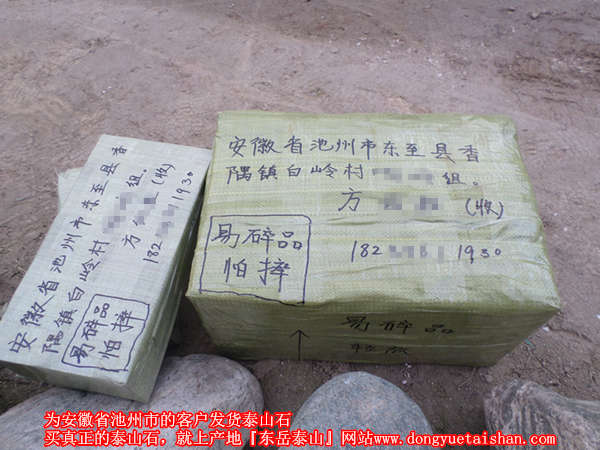 安徽省池州市东至县香
隅镇白岭村 组。
方 (收)
182 1930
易碎品
怕摔
安徽省池州市东至县香
隅镇白岭村 组。
方 (收)
182 1930
易碎品
怕摔
易碎品
轻放
为安徽省池州市的客户发货泰山石
买真正的泰山石，就上产地『东岳泰山』网站www.dongyuetaishan.com